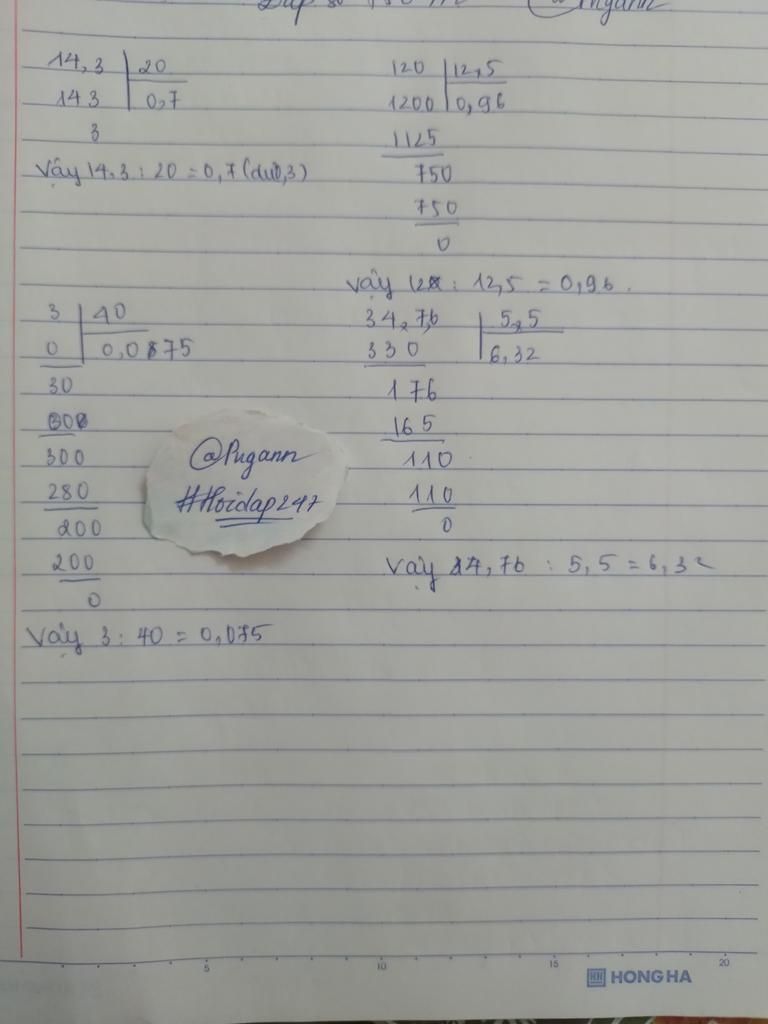 Đáp số 750 m @Pugann
14,3 | 20
143 | 0,7
3
Vậy 14,3 : 20 = 0,7 (dư 0,3)
120 | 12,5
1200 | 0,96
1125
750
750
0
Vậy 120 : 12,5 = 0,96.
3 | 40
0 | 0,075
30
00
300
280
200
200
0
Vậy 3 : 40 = 0,075
34,7,6 | 5,5
330 | 6,32
176
165
110
110
0
Vậy 34,76 : 5,5 = 6,32
@Pugann
#Hoidap247
5 10 15 20
HONG HA